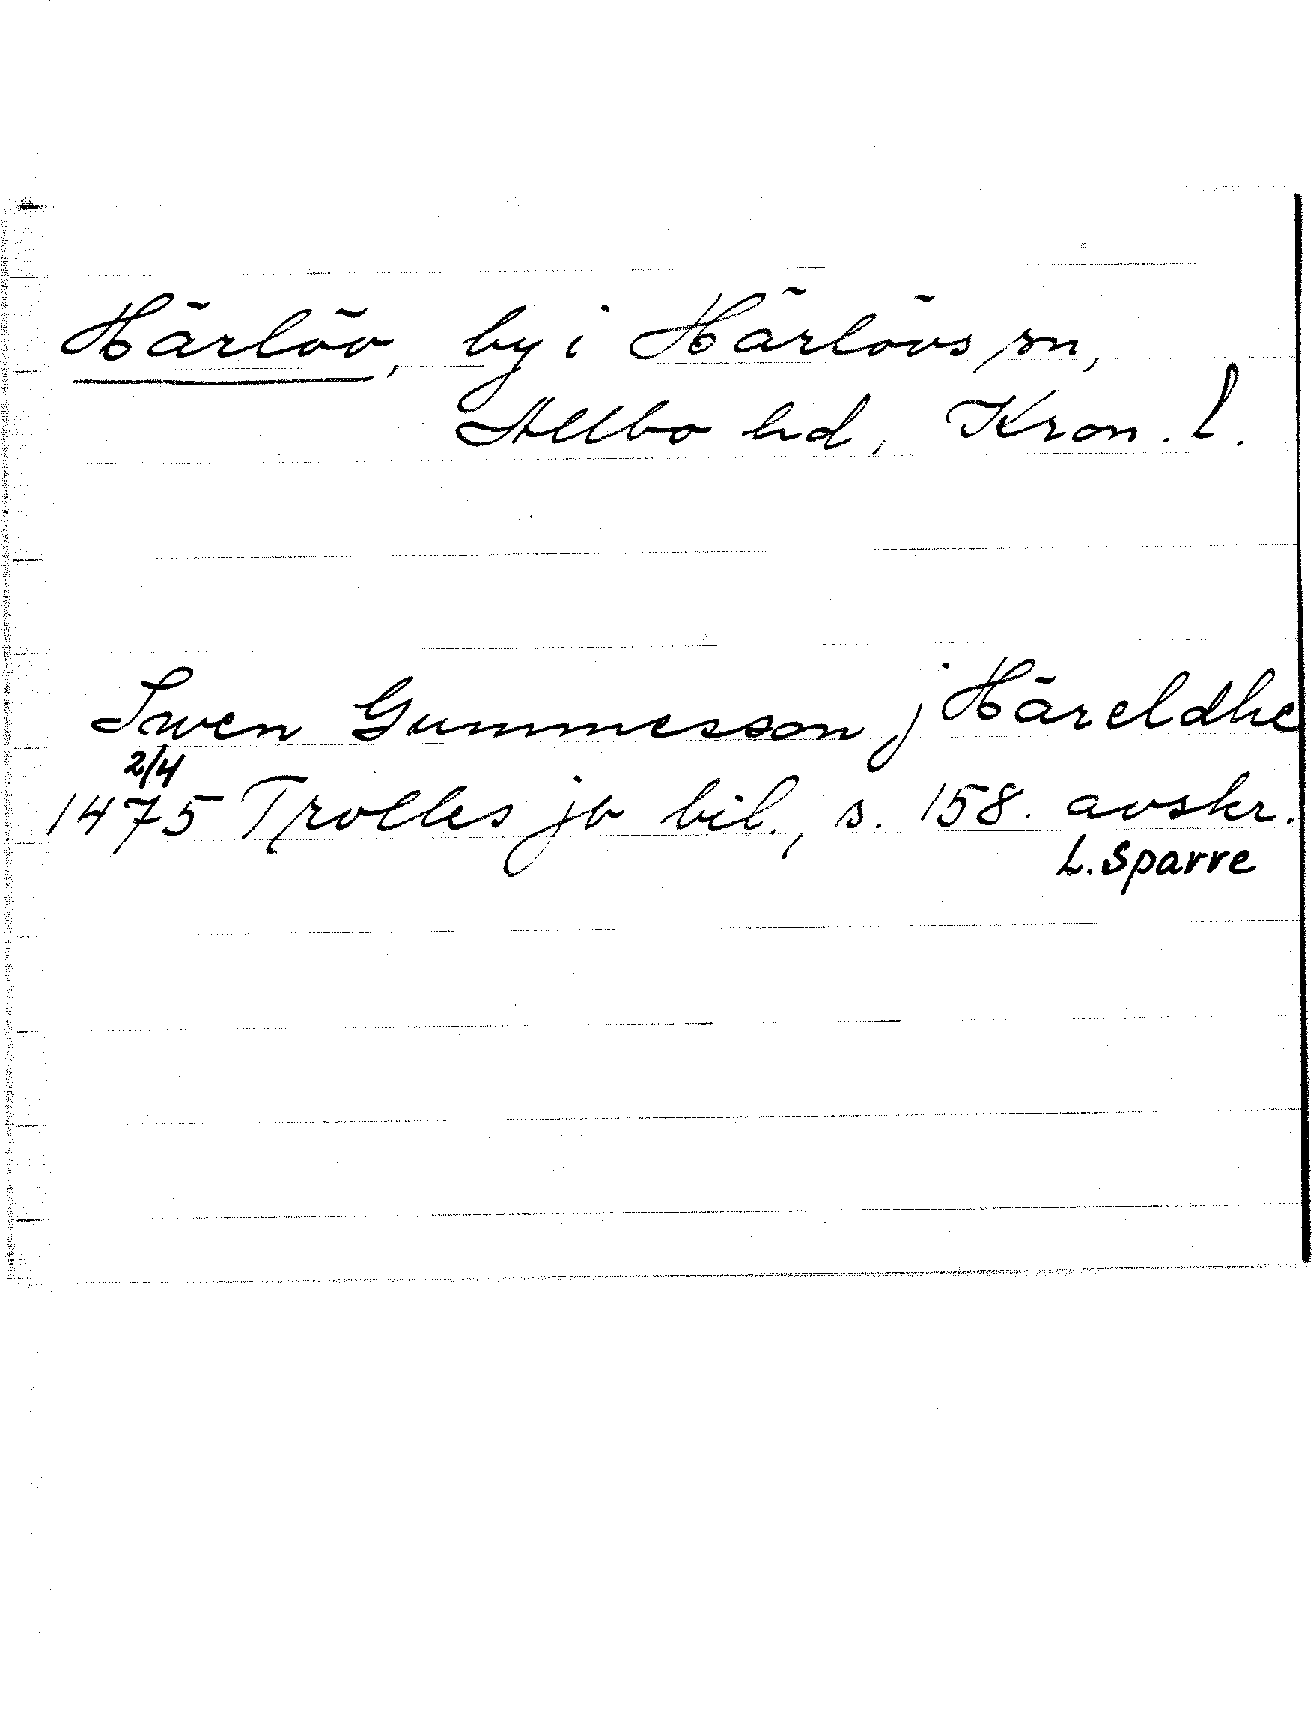 Härlöv, by i Härlövs sn,
Allbo hd, Kron. l.
Swen Gummesson j Häreldhe
2/4
1475 Trolles jb bil., s. 158. avskr.
L. Sparre